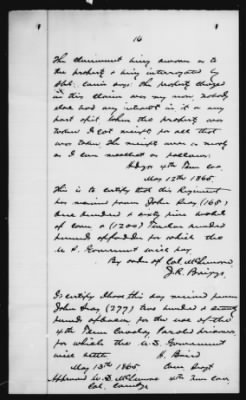 14
The claimant being sworn as to
the property & being interrogated by
Spl. Com. says: the property charged
in this claim was my own, nobody
else had any interest in it or any
part of it. When the property was
taken I got receipt for all that
was taken. The receipt were as nearly
as I can recollect as follows:
Hdqrs 4th Tenn Cav
May 12th 1865.
This is to certify that this Regiment
has received from John Gray (165)
One hundred & sixty five bushel
of corn & (1200) Twelve hundred
pounds of fodder for which the
U.S. Government will pay
By order of Col McLemore
J.R. Briggs
I certify I have this day received from
John Gray (277) two hundred & seventy
pounds of bacon for the use of the
4th Tenn Cavalry Paroled prisoners
for which the U.S. Government
will settle
H. Baird
May 13th 1865
Approved W.S. McLemore 4th Tenn Cav.
Col. Comdg